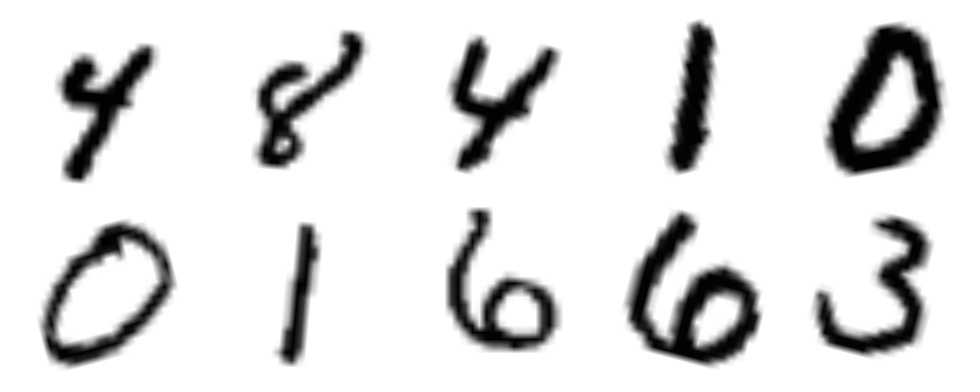 4 8 4 1 0
0 1 6 6 3